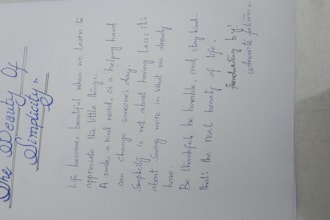 The Beauty Of
Simplicity.
Life becomes beautiful when we learn to
appreciate the little things.
A smile, a kind word, or a helping hand
can change someone's day.
Simplicity is not about having less; it's
about seeing more in what we already
have.
Be thankful, be humble, and stay kind-
that's the real beauty of life.
by: